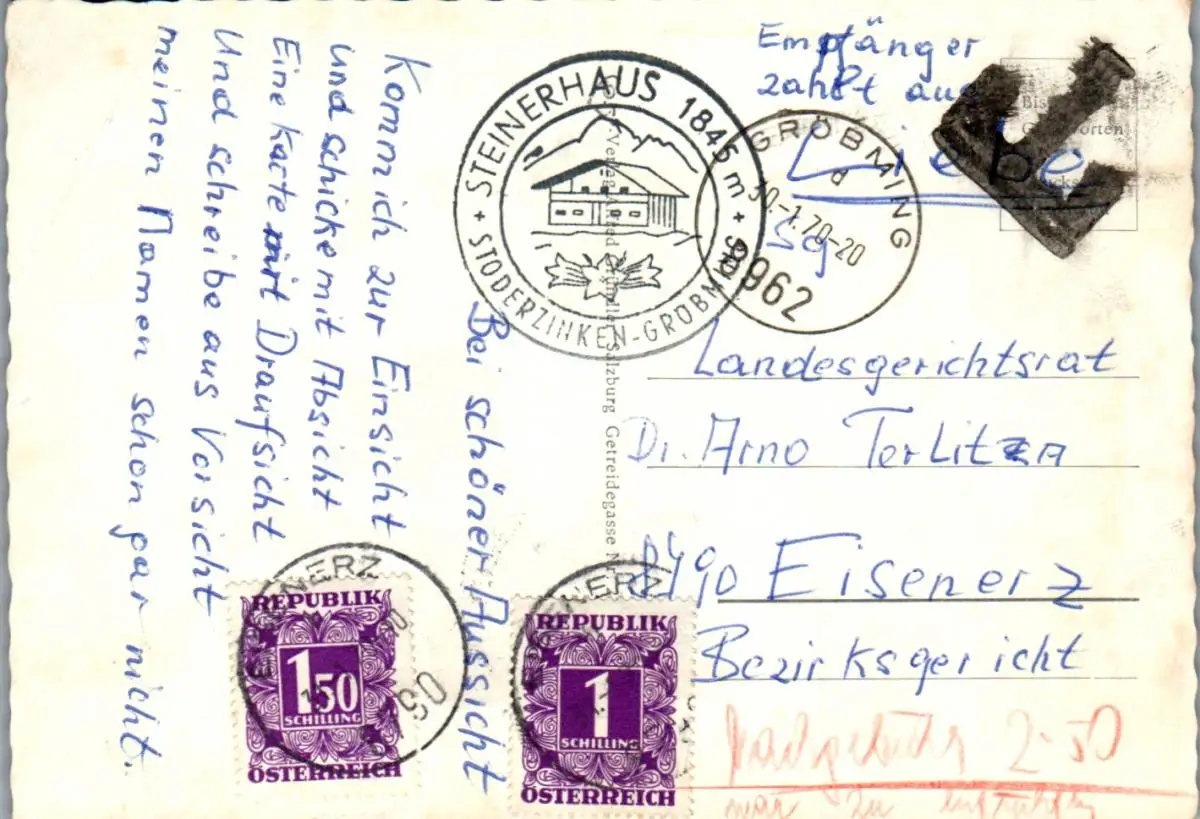 Bei schöner Aussicht
Komm ich zur Einsicht
und schicke mit Absicht
Eine Karte mit Draufsicht
Und schreibe aus Vorsicht
meinen Namen schon gar nicht.
+ STEINERHAUS 1845 m +
STODERZINKEN-GRÖBMING
GRÖBMING
d
30.-1.70-20
8962
Empfänger
zahlt aus
Liebe
Salzburg Getreidegasse
Landesgerichtsrat
Dr. Arno Terlitza
8790 Eisenerz
Bezirksgericht
EISENERZ
REPUBLIK
1 50
SCHILLING
ÖSTERREICH
EISENERZ
REPUBLIK
1
SCHILLING
ÖSTERREICH
Nachgebühr 2-50
war zu